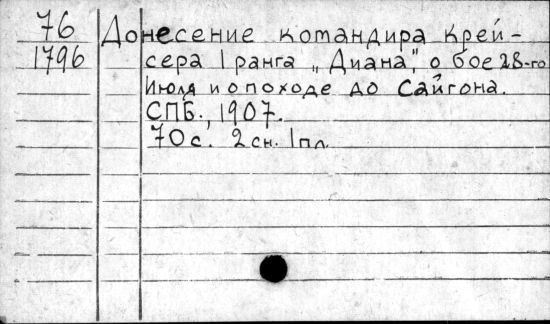 76
1796
Донесение командира Крей-
сера 1 ранга „Диана", о бое 28-го
Июля и о походе до Сайгона.
СПБ., 1907.
70 с. 2 сн. 1 пл.